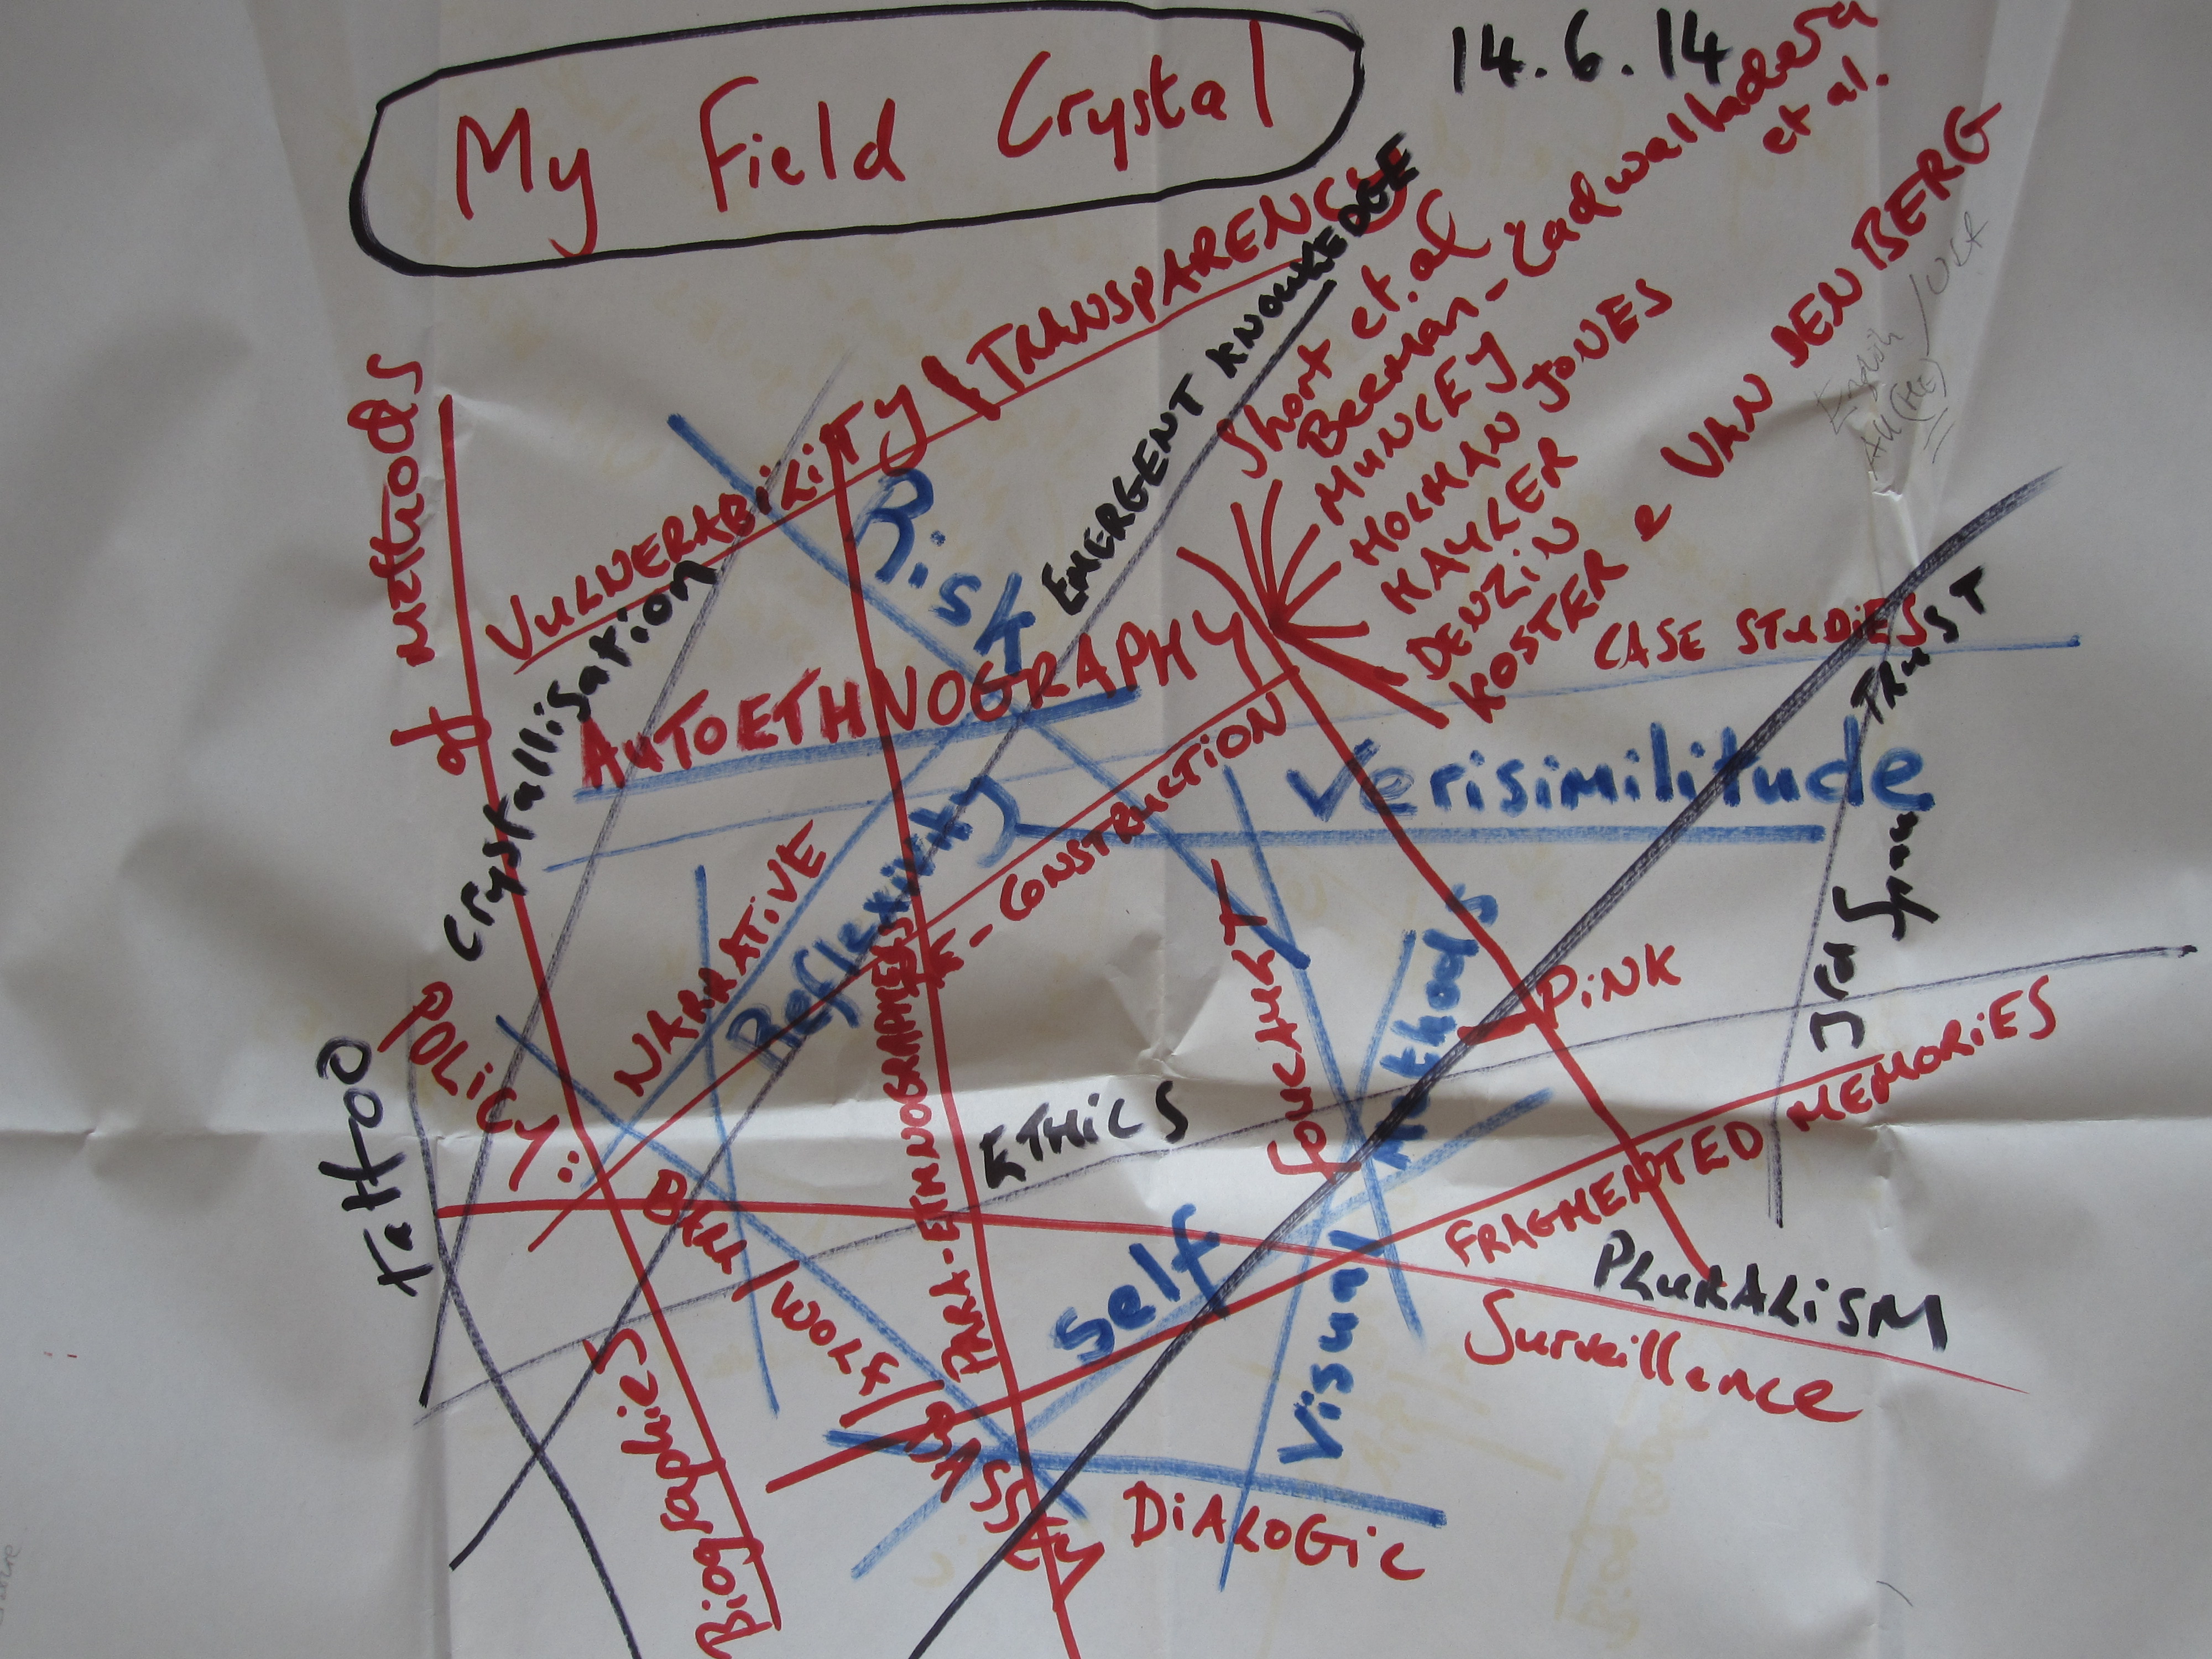 My Field Crystal
14.6.14
VULNERABILITY / TRANSPARENCY
EMERGENT KNOWLEDGE
Short et. al
Beeman-Cadwalladera et al.
MUNCEY
HOLMAN JONES
HAYLER
DENZIN
KOSTER & VAN DEN BERG
English
of methods
Crystallisation
Risk
AUTOETHNOGRAPHY
CASE STUDIES
TRUST
Verisimilitude
RE-CONSTRUCTION
NARRATIVE
Reflexivity
PARA-ETHNOGRAPHIES
FOUCAULT
Visual Methods
PINK
3rd Space
FRAGMENTED MEMORIES
Tattoo
POLICY:
BALL / WOLF / DASSEY
ETHICS
Self
PLURALISM
Surveillence
Biographies
DIALOGIC